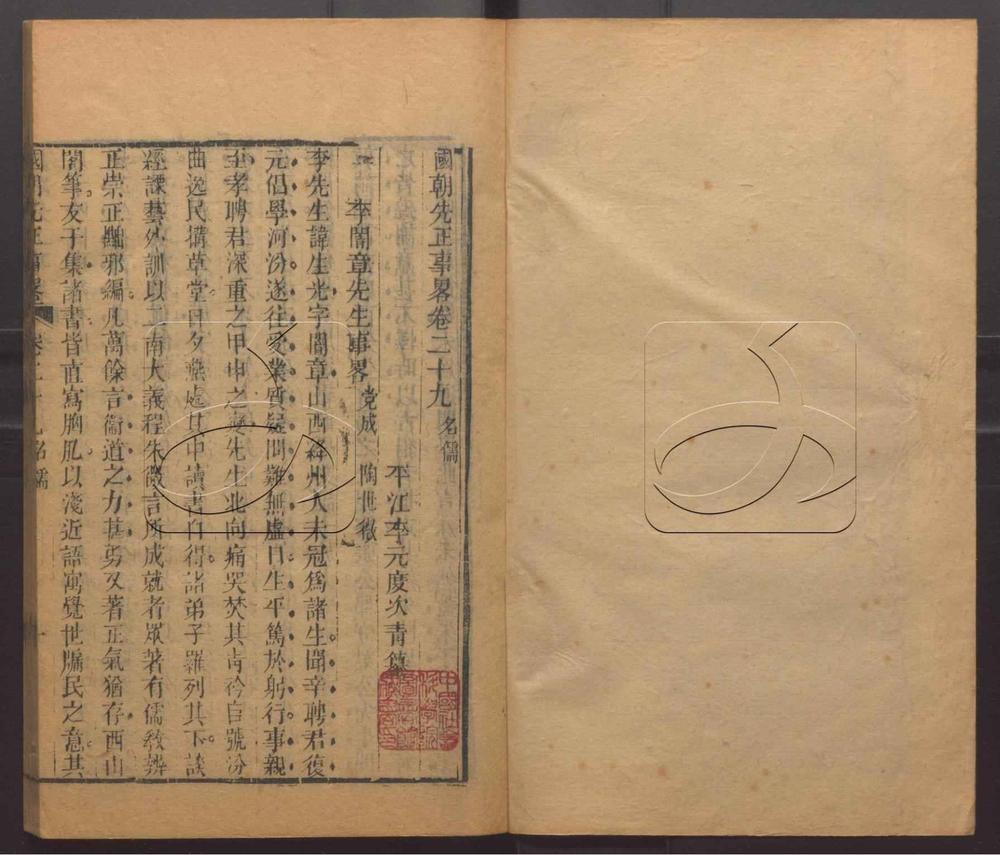 國朝先正事畧卷二十九 名儒
平江李元度次青纂
李闇章先生事畧 党成 陶世徵
李先生諱生光字闇章山西絳州人未冠爲諸生聞辛聘君復
元倡學河汾遂往受業質疑問難無虛日生平篤於躬行事親
至孝聘君深重之甲申之變先生北向痛哭焚其青衿自號汾
曲逸民搆草堂日夕燕處其中讀書自得諸弟子羅列其下談
經課藝外訓以二南大義程朱微言所成就者眾著有儒教辨
正崇正黜邪編凡萬餘言衞道之力甚勇又著正氣猶存西山
閣筆友于集諸書皆直寫胸肊以淺近語寓覺世牖民之意其
國朝先正事畧 卷二十九 名儒 一